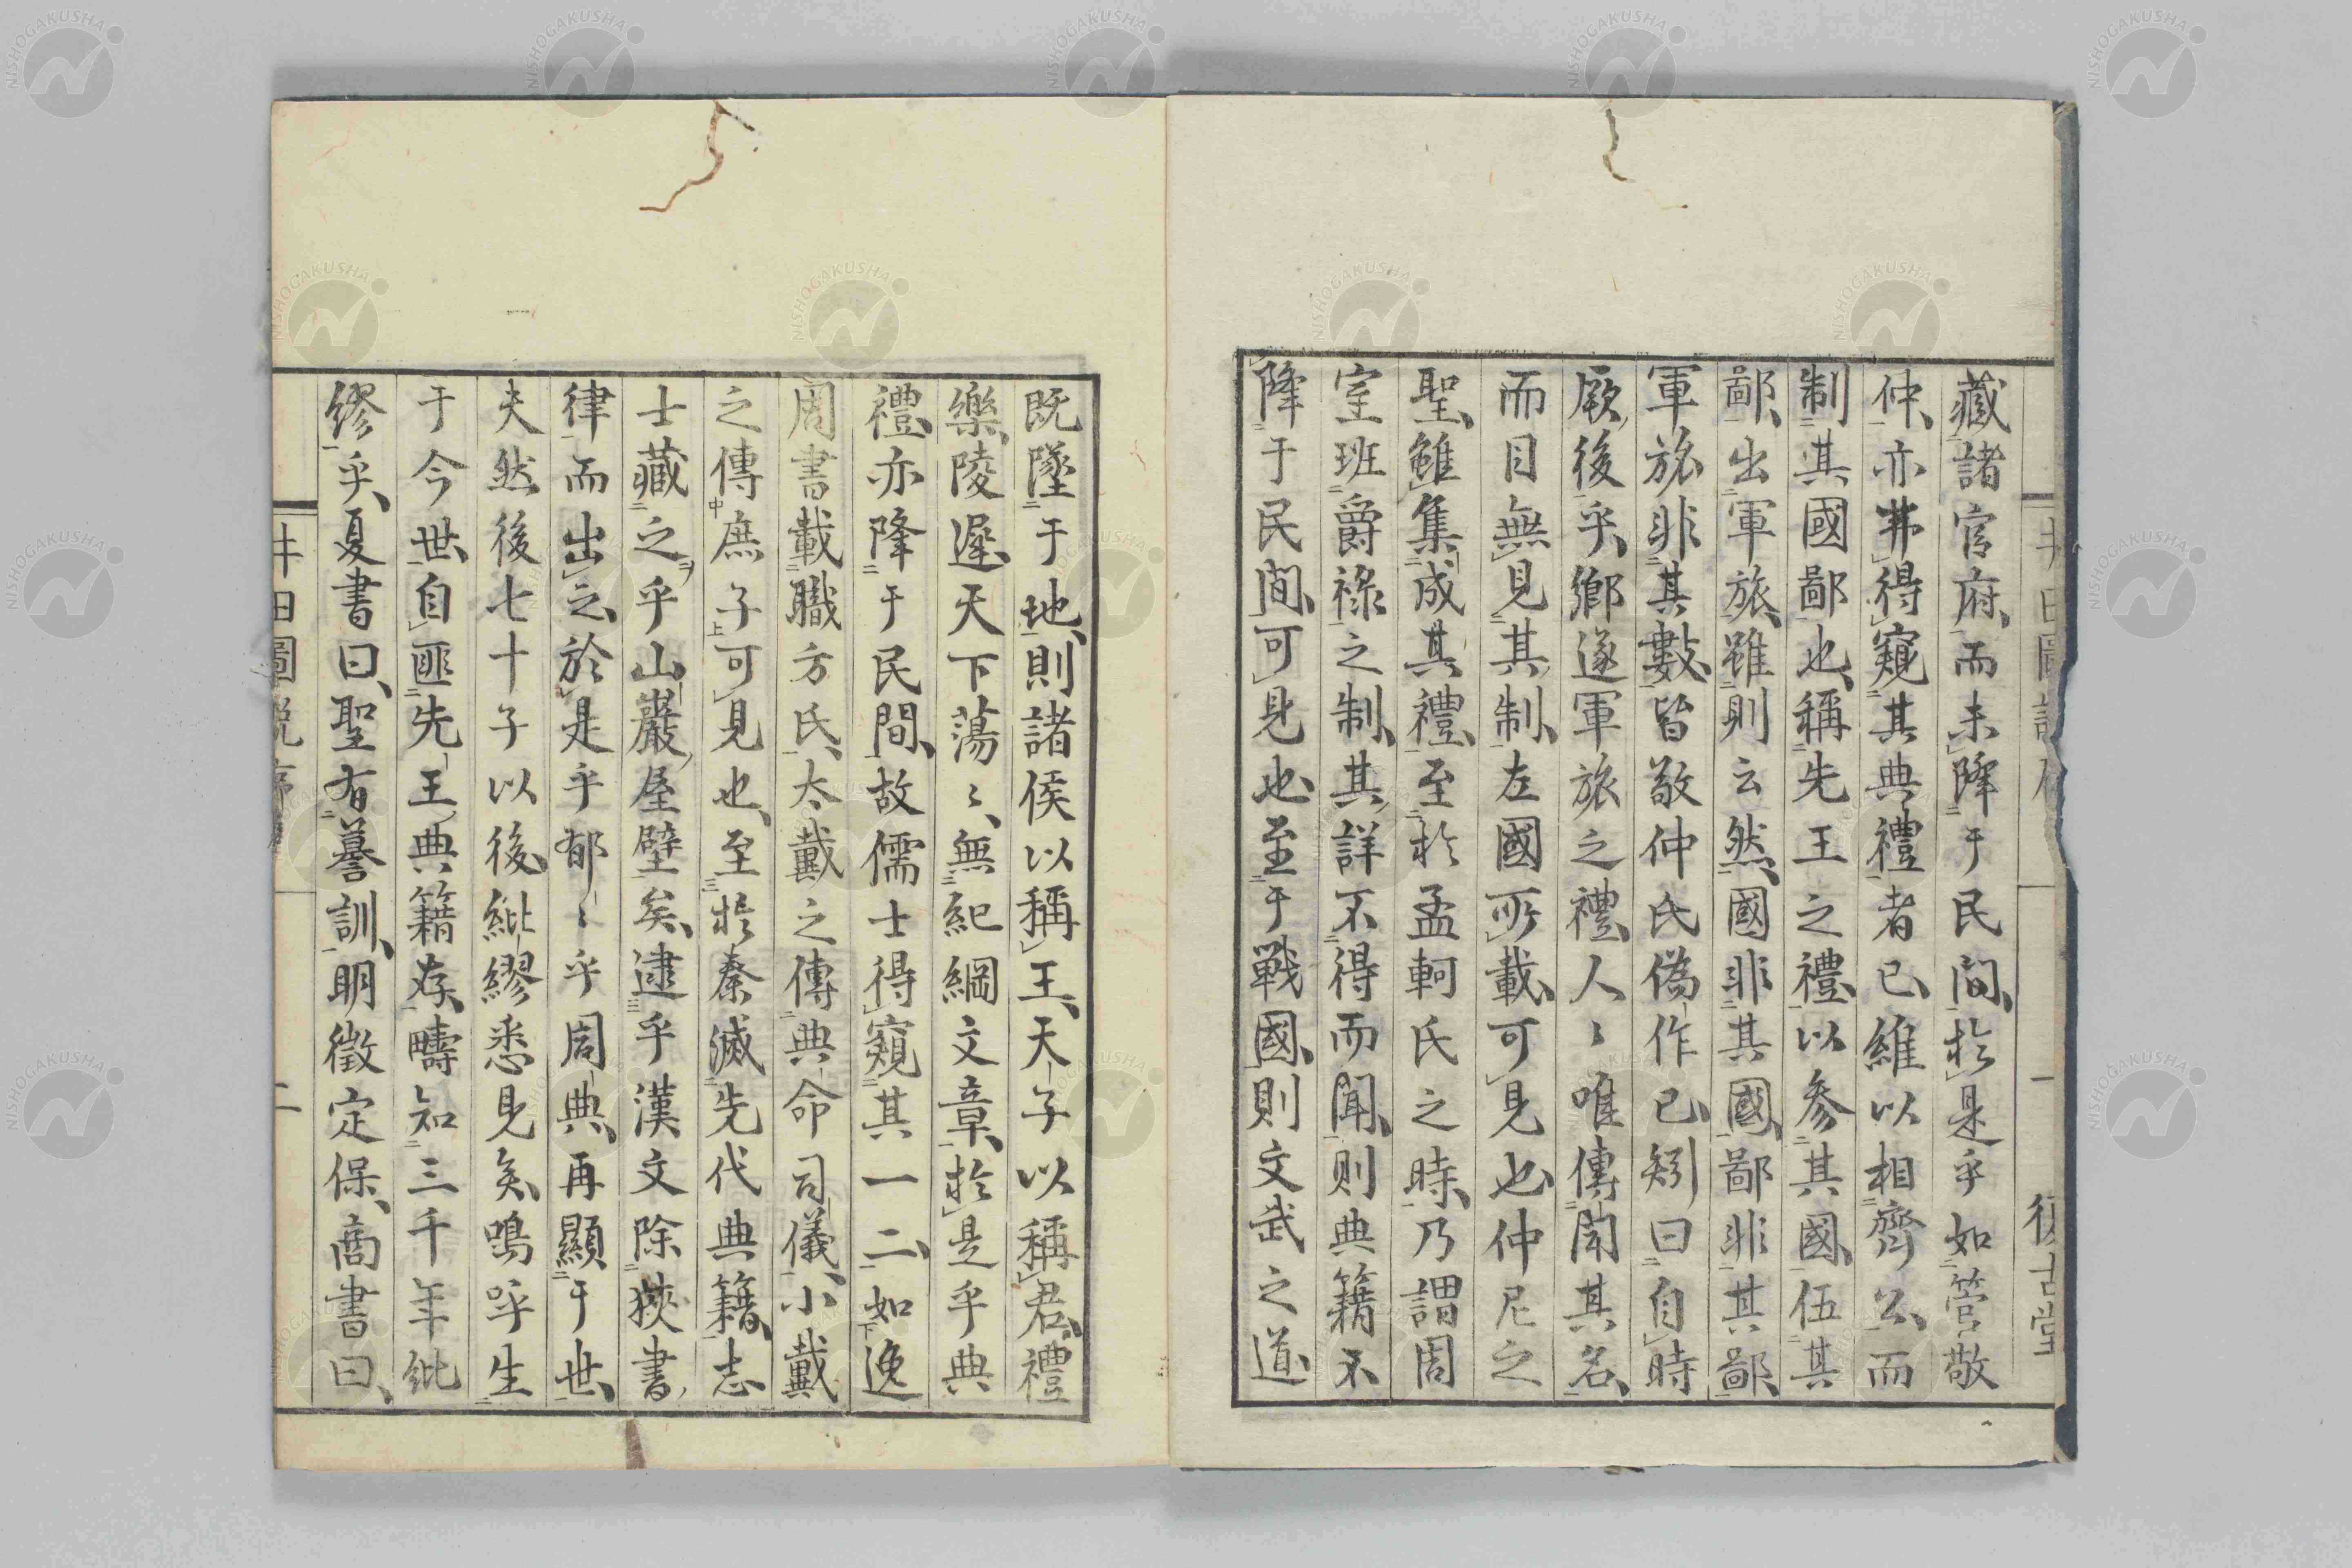 藏諸官府、而未降于民間、於是乎如管敬
仲、亦弗得窺其典禮者已、維以相齊公、而
制其國鄙也、稱先王之禮、以参其國、伍其
鄙、出軍旅、雖則云然、國非其國、鄙非其鄙、
軍旅非其數、皆敬仲氏偽作已、矧曰自時
厥後乎、鄉遂軍旅之禮、人〻唯傳聞其名、
而目無見其制、左國所載、可見也、仲尼之
聖、雖集成其禮、至於孟軻氏之時、乃謂周
室班爵祿之制、其詳不得而聞、則典籍不
降于民間、可見也、至于戰國、則文武之道
既墜于地、則諸侯以稱王、天子以稱君、禮
樂陵遲、天下蕩〻、無紀綱文章、於是乎典
禮亦降于民間、故儒士得窺其一二、如逸
周書載職方氏、大戴之傳典命司儀、小戴
之傳庶子可見也、至於秦滅先代典籍、志
士藏之乎山巖屋壁矣、逮乎漢文除狹書
律而出之、於是乎郁〻乎周典、再顯于世、
夫然後七十子以後、紕繆悉見矣、嗚呼生
于今世、自匪先王典籍存、疇知三千年紕
繆乎、夏書曰、聖有謩訓、明徵定保、商書曰、
井田圖說序
一
復古堂
井田圖說序
二
NISHOGAKUSHA